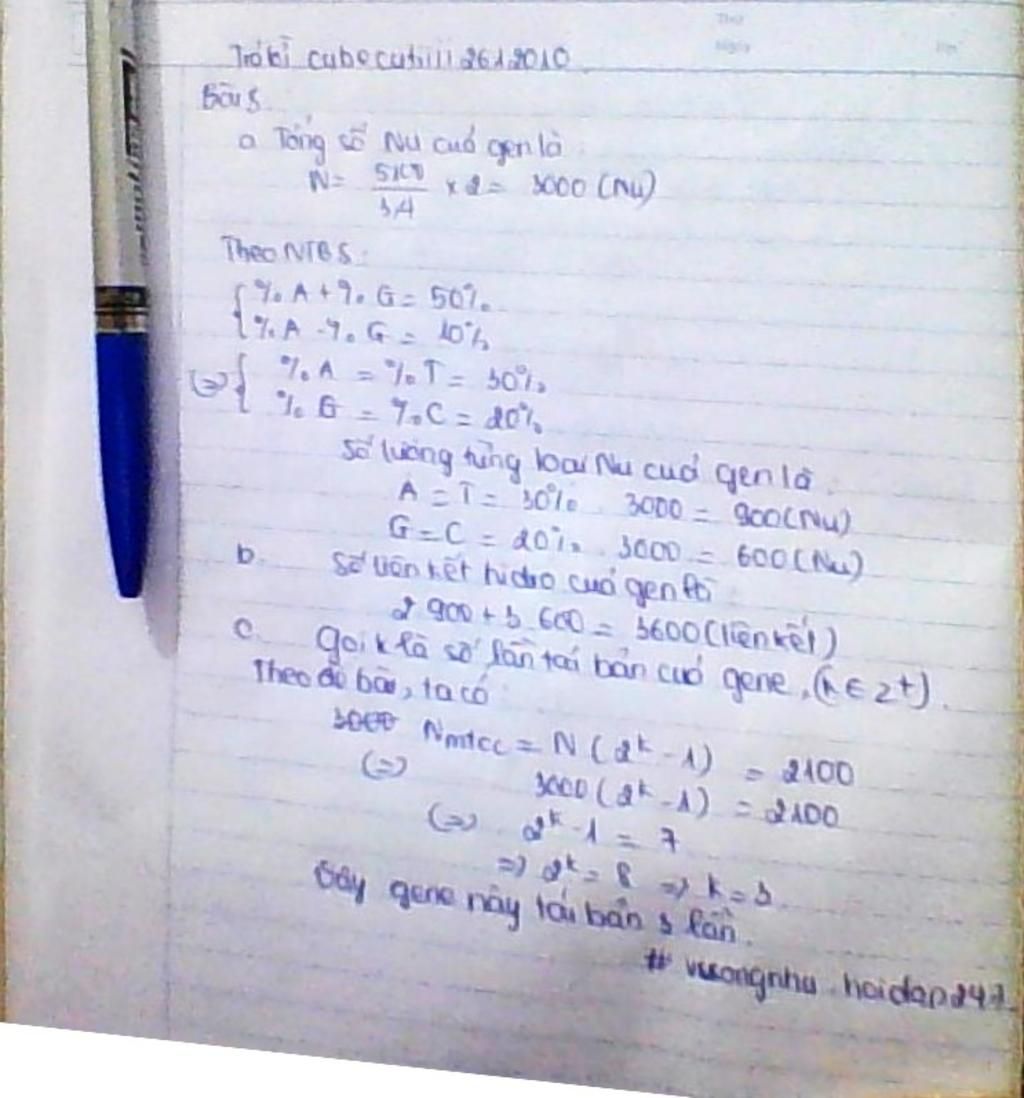 Trả lời cubecutiiii2612010
Bài 5
a Tổng số Nu của gen là:
N = 5100/3,4 × 2 = 3000 (Nu)
Theo NTBS:
{ %A + %G = 50%
%A - %G = 10%
(=) { %A = %T = 30%
%G = %C = 20%
Số lượng từng loại Nu của gen là:
A = T = 30% . 3000 = 900 (Nu)
G = C = 20% . 3000 = 600 (Nu)
b. Số liên kết hidro của gen là:
2 900 + 3 600 = 3600 (liên kết)
c. Gọi k là số lần tái bản của gene, (k ∈ Z+).
Theo đề bài, ta có:
3000 Nmtcc = N (2^k - 1) = 2100
(=) 3000 (2^k - 1) = 2100
(=) 2^k - 1 = 7
=) 2^k = 8 =) k = 3
Vậy gene này tái bản 3 lần.
# vuongnhu . hoidap247